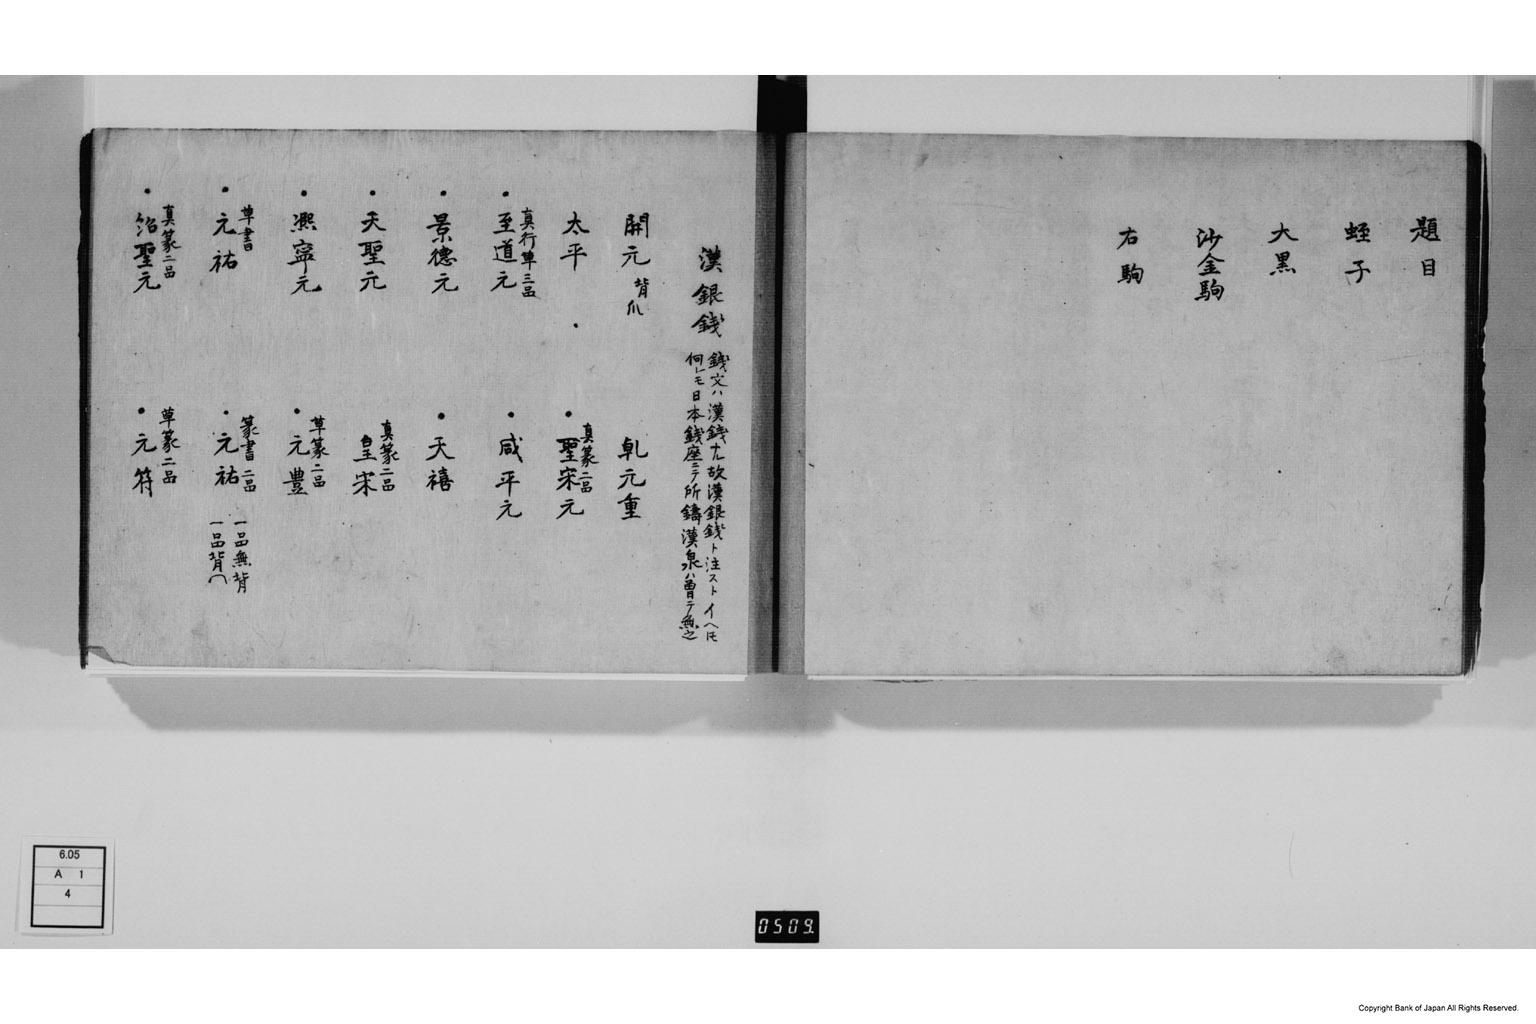 題目
蛭子
大黒
沙金駒
右駒
漢銀銭
銭文ハ漢銭ナル故漢銀銭ト注ストイヘトモ
何レモ日本銭座ニテ所鋳漢泉ハ曽テ無之
開元 背爪
乾元重
太平
聖宋元 真篆二品
至道元 真行草三品
咸平元
景徳元
天禧
天聖元
皇宋 真篆二品
熙寧元
元豊 草篆二品
元祐 草書
元祐 篆書二品 一品無背
一品背
紹聖元 真篆二品
元符 草篆二品
6.05
A 1
4
0509
Copyright Bank of Japan All Rights Reserved.